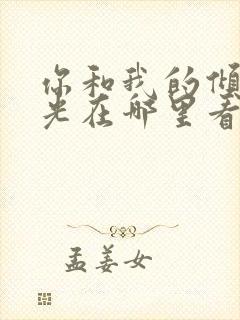 你和我的倾
光在哪里看
孟姜女